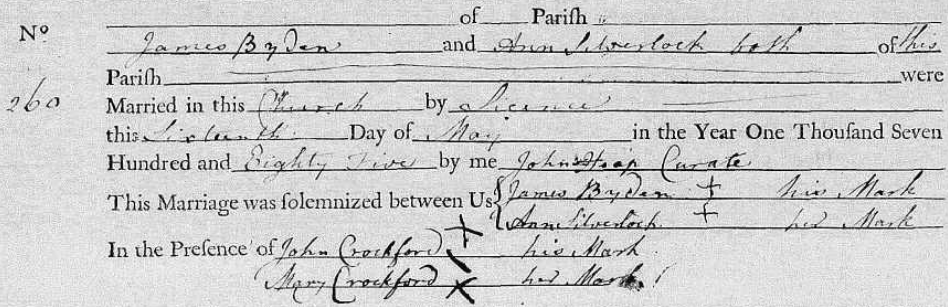 of Parish
Nº
James Byden and Ann Silverlock both of this
Pariſh were
260
Married in this Church by Licence
this Sixteenth Day of May in the Year One Thouſand Seven
Hundred and Eighty Five by me John Curate
This Marriage was ſolemnized between Us { James Byden + his Mark
Ann Silverlock + her Mark
In the Preſence of John Crockford X his Mark
Mary Crockford X her Mark